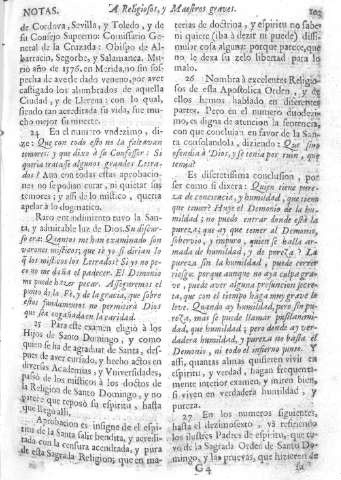 NOTAS.
A Religiosos, y Maestros graves.
103
de Cordova, Sevilla, y Toledo, y de
su Consejo Supremo: Comissario General
de la Cruzada: Obispo de Albarracin,
Segorbe, y Salamanca. Murió
año de 1576. en Merida, no sin sospecha
de averle dado veneno, por aver
castigado los alumbrados de aquella
Ciudad, y de Llerena: con lo qual,
siendo tan acreditada su vida, fue mucho
mejor su muerte.
24 En el numero vndezimo, dize:
Que con todo esto no la faltavan
temores; y que dixo à su Confessor: Si
queria tratasse algunos grandes Letrados?
Aun con todas estas aprobaciones
no se podian curar, ni quietar sus
temores; y assi de lo mistico, queria
apelar à lo dogmatico.
Raro entendimiento tuvo la Santa,
y admirable luz de Dios. Su discurso
era: Quantos me han examinado son
varones misticos; què sè yo si dirian lo
que los misticos los Letrados? Si yo no peco
no me daña el padecer. El Demonio
me puede hazer pecar. Asseguremos el
punto de la Fè, y de la gracia, que sobre
estos fundamentos no permitirà Dios
que sea engañada en la caridad.
25 Para este examen eligiò à los
Hijos de Santo Domingo, y como
quien se ha de agraduar de Santa, despues
de aver cursado, y hecho actos en
diversas Academias, y Vniversidades,
passò de los misticos à los doctos de
la Religion de Santo Domingo, y no
parece que reposò su espiritu, hasta
que llegò alli.
Aprobacion es insigne de el espiritu
de la Santa salir bendita, y acreditada
con la censura acendrada, y pura
de esta Sagrada Religion; que en materias
de doctrina, y espiritu no sabe
ni quiere (iba à dezir ni puede) dissimular
cosa alguna: porque parece, que
no le dexa su zelo libertad, para lo
imperfecto.
26 Nombra à excelentes Religiosos
de esta Apostolica Orden, y de
ellos hemos hablado en diferentes
partes. Pero en el numero duodezimo,
es digna de atencion la sentencia,
con que concluìan en favor de la Santa
consolandola, diziendo: Que sino
ofendia à Dios, y se tenia por ruin, què
temia?
Es discretissima conclusion, por
ser como si dixera: Quien tiene pureza
de conciencia, y humildad, què tiene
que temer? Huye el Demonio de la humildad;
no puede entrar donde està la
pureza; què ay que temer al Demonio,
sobervio, y impuro, quien se halla armada
de humildad, y de pureza? La
pureza sin la humildad, puede correr
riesgo: porque aunque no aya culpa grave,
puede aver alguna presuncion secreta,
que con el tiempo haga muy grave la
leve. Quando ay humildad, pero sin pureza,
mas se puede llamar pusilanimidad,
que humildad; pero donde ay verdadera
humildad, y pureza no basta el
Demonio, ni todo el infierno junto. Y
assi, quantas almas quisieren vivir en
espiritu, y verdad, hagan frequentamente
interior examen, y miren bien,
si viven en verdadera humildad, y
pureza.
27 En los numeros siguientes,
hasta el dezimosexto, và refiriendo
los ilustres Padres de espiritu, que tuvo
de la Sagrada Orden de Santo Domingo,
y las pruevas, que hizieron de
G 4
su